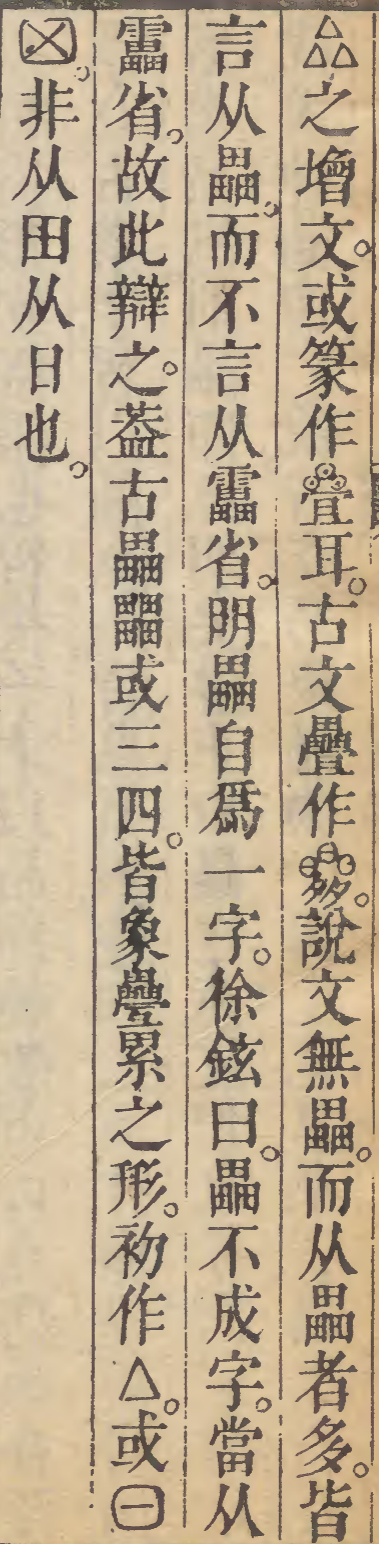 之增文。或篆作耳。古文疊作。說文無畾。而从畾者多。皆
言从畾。而不言从靁省。明畾自爲一字。徐鉉曰。畾不成字。當从
靁省。故此辯之。葢古畾𤴁或三四。皆象疊累之形。初作△。或㊀
〤。非从田从日也。